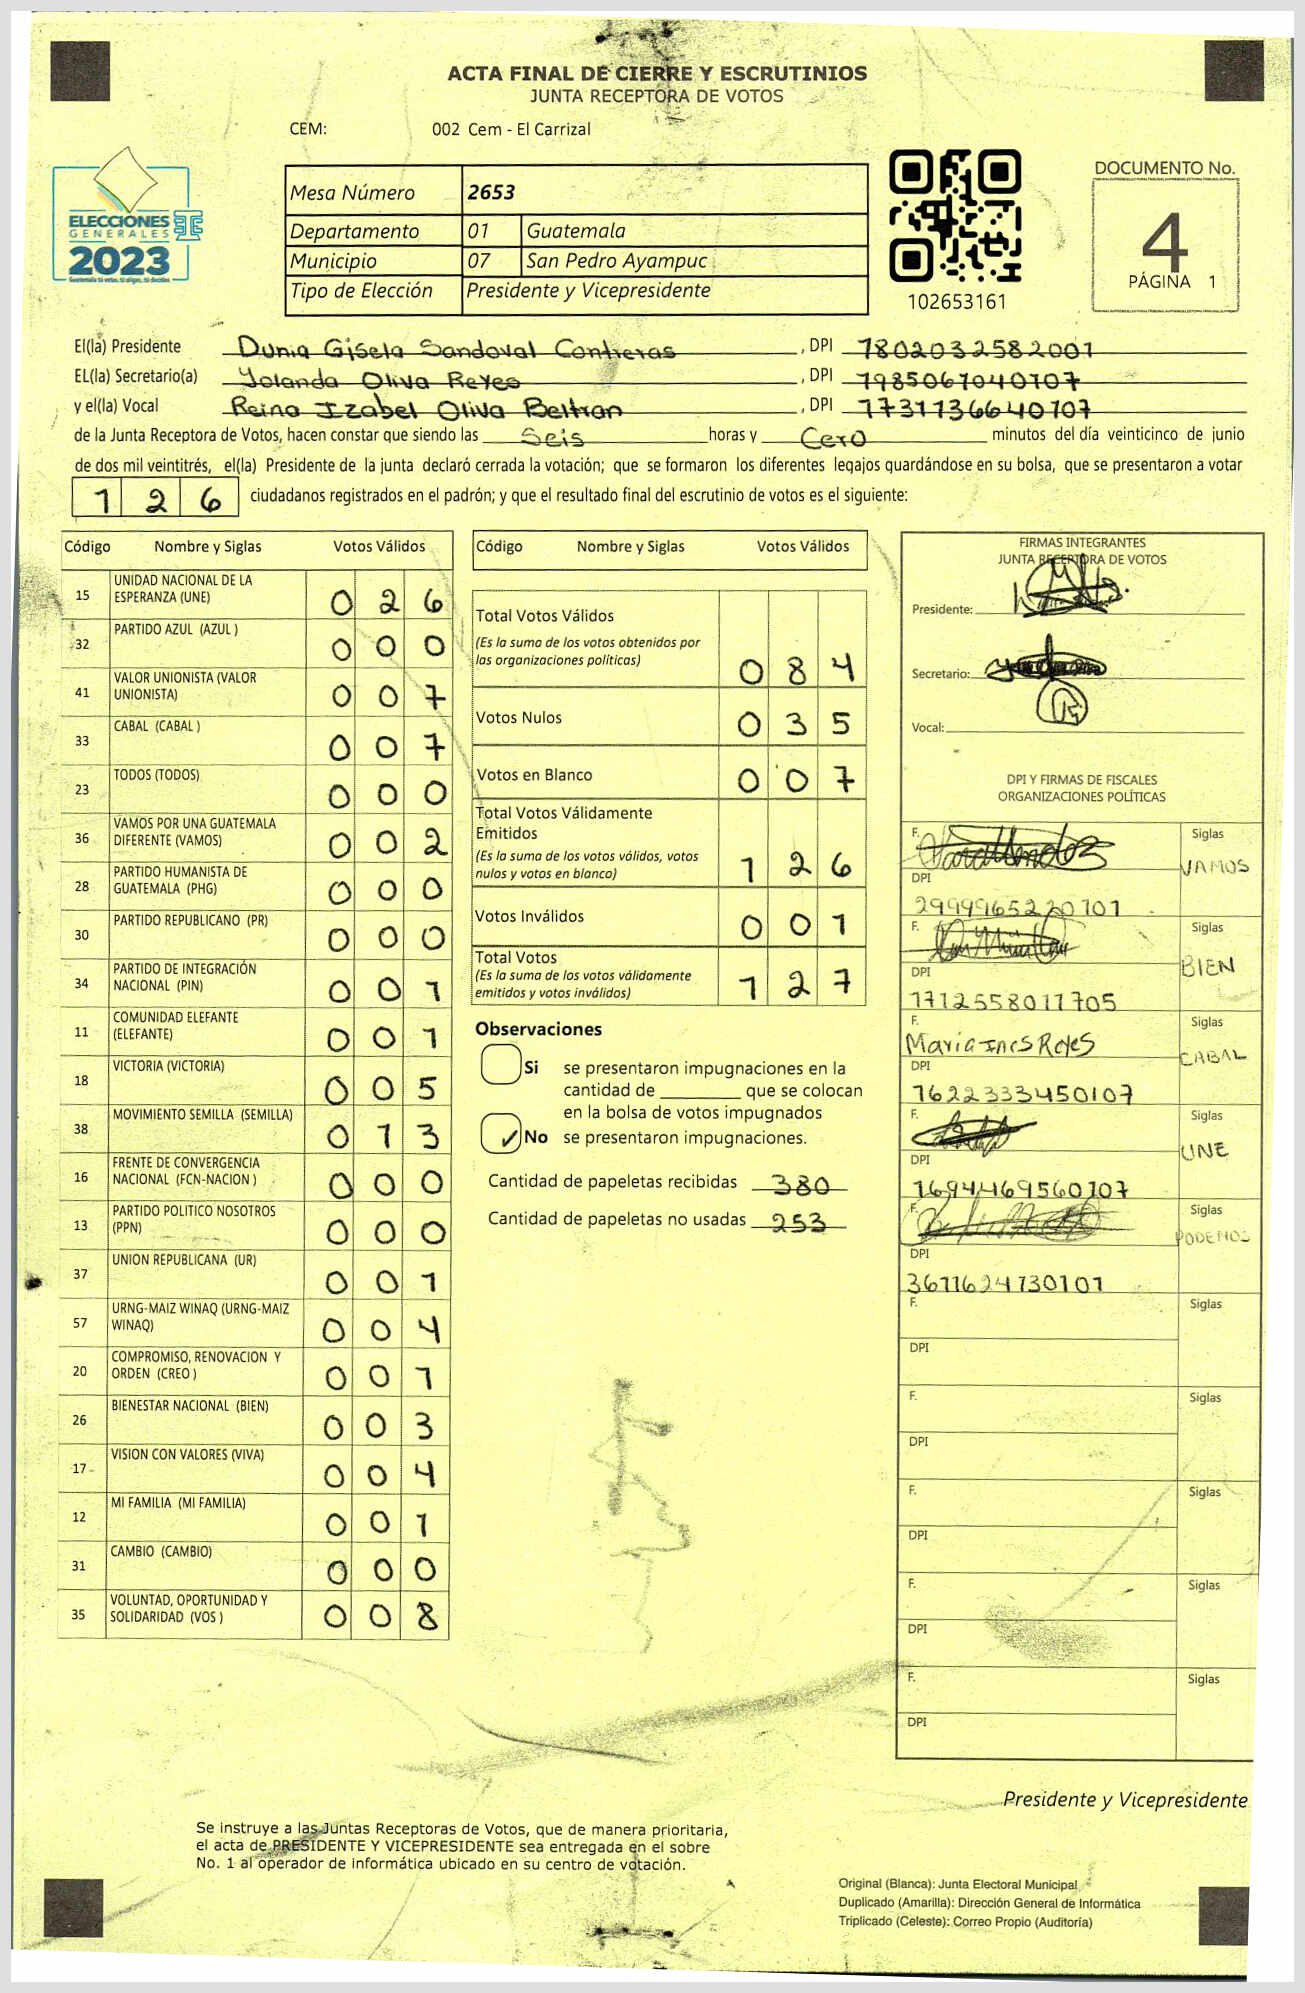 ACTA FINAL DE CIERRE Y ESCRUTINIOS
JUNTA RECEPTORA DE VOTOS
CEM: 002 Cem - El Carrizal
ELECCIONES
GENERALES
2023
Mesa Número 2653
Departamento 01 Guatemala
Municipio 07 San Pedro Ayampuc
Tipo de Elección Presidente y Vicepresidente
102653161
DOCUMENTO No.
4
PÁGINA 1
El(la) Presidente Dunia Gisela Sandoval Contreras , DPI 1802032582001
EL(la) Secretario(a) Yolanda Oliva Reyes , DPI 1985061040107
y el(la) Vocal Reina Izabel Oliva Beltran , DPI 1731136640107
de la Junta Receptora de Votos, hacen constar que siendo las Seis horas y Cero minutos del día veinticinco de junio
de dos mil veintitrés, el(la) Presidente de la junta declaró cerrada la votación; que se formaron los diferentes legajos guardándose en su bolsa, que se presentaron a votar
1 2 6 ciudadanos registrados en el padrón; y que el resultado final del escrutinio de votos es el siguiente:
Código Nombre y Siglas Votos Válidos
15 UNIDAD NACIONAL DE LA ESPERANZA (UNE) 0 2 6
32 PARTIDO AZUL (AZUL ) 0 0 0
41 VALOR UNIONISTA (VALOR UNIONISTA) 0 0 7
33 CABAL (CABAL ) 0 0 7
23 TODOS (TODOS) 0 0 0
36 VAMOS POR UNA GUATEMALA DIFERENTE (VAMOS) 0 0 2
28 PARTIDO HUMANISTA DE GUATEMALA (PHG) 0 0 0
30 PARTIDO REPUBLICANO (PR) 0 0 0
34 PARTIDO DE INTEGRACIÓN NACIONAL (PIN) 0 0 1
11 COMUNIDAD ELEFANTE (ELEFANTE) 0 0 1
18 VICTORIA (VICTORIA) 0 0 5
38 MOVIMIENTO SEMILLA (SEMILLA) 0 1 3
16 FRENTE DE CONVERGENCIA NACIONAL (FCN-NACION ) 0 0 0
13 PARTIDO POLITICO NOSOTROS (PPN) 0 0 0
37 UNION REPUBLICANA (UR) 0 0 1
57 URNG-MAIZ WINAQ (URNG-MAIZ WINAQ) 0 0 4
20 COMPROMISO, RENOVACION Y ORDEN (CREO ) 0 0 1
26 BIENESTAR NACIONAL (BIEN) 0 0 3
17 VISION CON VALORES (VIVA) 0 0 4
12 MI FAMILIA (MI FAMILIA) 0 0 1
31 CAMBIO (CAMBIO) 0 0 0
35 VOLUNTAD, OPORTUNIDAD Y SOLIDARIDAD (VOS ) 0 0 8
Código Nombre y Siglas Votos Válidos
Total Votos Válidos
(Es la suma de los votos obtenidos por
las organizaciones políticas) 0 8 4
Votos Nulos 0 3 5
Votos en Blanco 0 0 7
Total Votos Válidamente
Emitidos
(Es la suma de los votos válidos, votos
nulos y votos en blanco) 1 2 6
Votos Inválidos 0 0 1
Total Votos
(Es la suma de los votos válidamente
emitidos y votos inválidos) 1 2 7
Observaciones
Si se presentaron impugnaciones en la
cantidad de ________ que se colocan
en la bolsa de votos impugnados
✓ No se presentaron impugnaciones.
Cantidad de papeletas recibidas 380
Cantidad de papeletas no usadas 253
FIRMAS INTEGRANTES
JUNTA RECEPTORA DE VOTOS
Presidente:
Secretario:
Vocal:
DPI Y FIRMAS DE FISCALES
ORGANIZACIONES POLÍTICAS
F. Siglas
VAMOS
DPI
2999965220101
F. Siglas
BIEN
DPI
1712558011705
F. Siglas
Maria Ines Reyes
CABAL
DPI
1622333450107
F. Siglas
UNE
DPI
1694469560107
F. Siglas
PODEMOS
DPI
3671624130101
F. Siglas
DPI
F. Siglas
DPI
F. Siglas
DPI
F. Siglas
DPI
F. Siglas
DPI
Presidente y Vicepresidente
Se instruye a las Juntas Receptoras de Votos, que de manera prioritaria,
el acta de PRESIDENTE Y VICEPRESIDENTE sea entregada en el sobre
No. 1 al operador de informática ubicado en su centro de votación.
Original (Blanca): Junta Electoral Municipal
Duplicado (Amarilla): Dirección General de Informática
Triplicado (Celeste): Correo Propio (Auditoría)